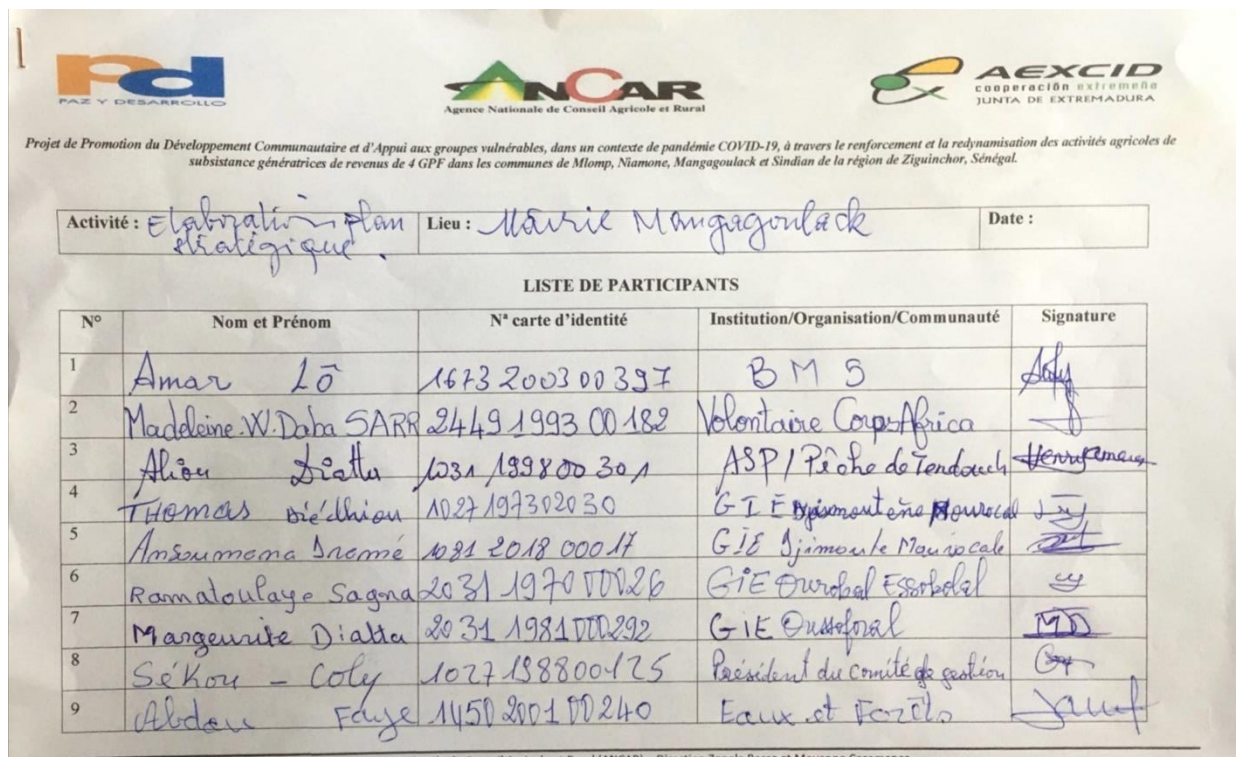 Pd
PAZ Y DESARROLLO
ANCAR
Agence Nationale de Conseil Agricole et Rural
AEXCID
cooperación extremeña
JUNTA DE EXTREMADURA
Projet de Promotion du Développement Communautaire et d'Appui aux groupes vulnérables, dans un contexte de pandémie COVID-19, à travers le renforcement et la redynamisation des activités agricoles de
subsistance génératrices de revenus de 4 GPF dans les communes de Mlomp, Niamone, Mangagoulack et Sindian de la région de Ziguinchor, Sénégal.
Activité : Elaboration plan stratégique. Lieu : Mairie Mangagoulack Date :
LISTE DE PARTICIPANTS
N° Nom et Prénom Nª carte d'identité Institution/Organisation/Communauté Signature
1 Amar Lô 1673 2003 00397 BMS
2 Madeleine.W.Daba SARR 2449 1993 00 182 Volontaire CorpsAfrica
3 Aliou Diatta 1031 199800 301 ASP/Pêche de Tendouck
4 THomas Diédhiou 1027 197302030 GIE
5 Ansoumana Dramé 1081 2018 00017 GIE Djimonte Mourocale
6 Ramatoulaye Sagna 2031 1970 00026 GIE Ourobal Essobolal
7 Margeurite Diatta 2031 1981 000292 GIE Oussoforal MD
8 Sékou - Coly 1027 198800125 Président du comité de gestion
9 Abdou Faye 1450 2001 00240 Eaux et Forêts